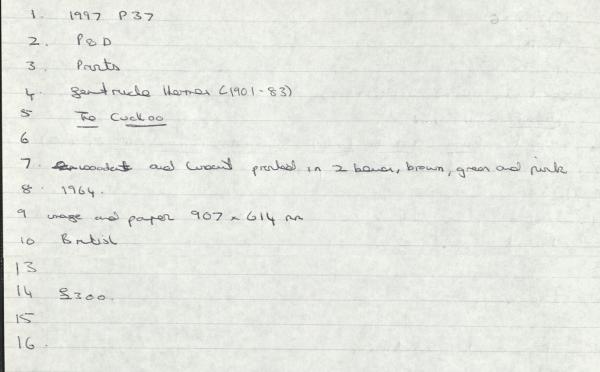 1. 1997 P37
2. P&D
3. Prints
4. Gertrude Hermes (1901-83)
5 The Cuckoo
6
7. woodcut and linocut printed in 2 , brown, green and pink
8. 1964.
9 image and paper 907 x 614 mm
10 British
13
14 £300.
15
16.